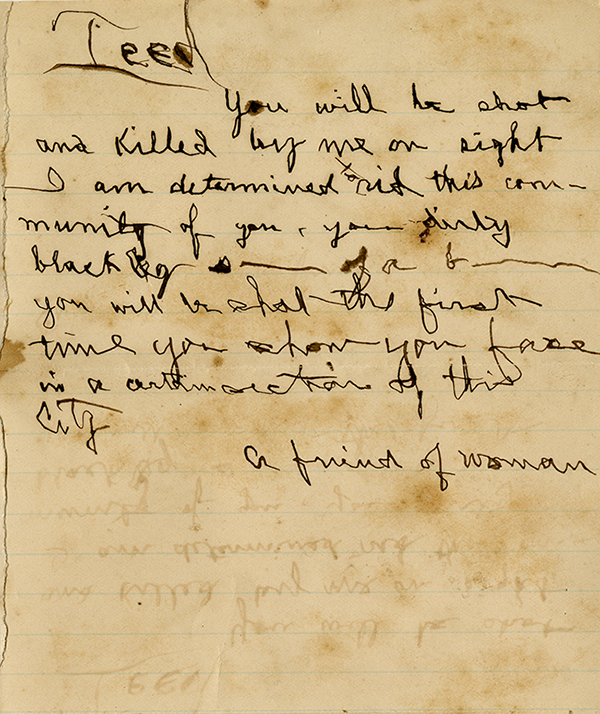 Teed
You will be shot
and killed by me on sight
I am determined to rid this com-
munity of you, you dirty
black leg s—— of a b——
you will be shot the first
time you show you face
in a certin section of this
City
a friend of woman